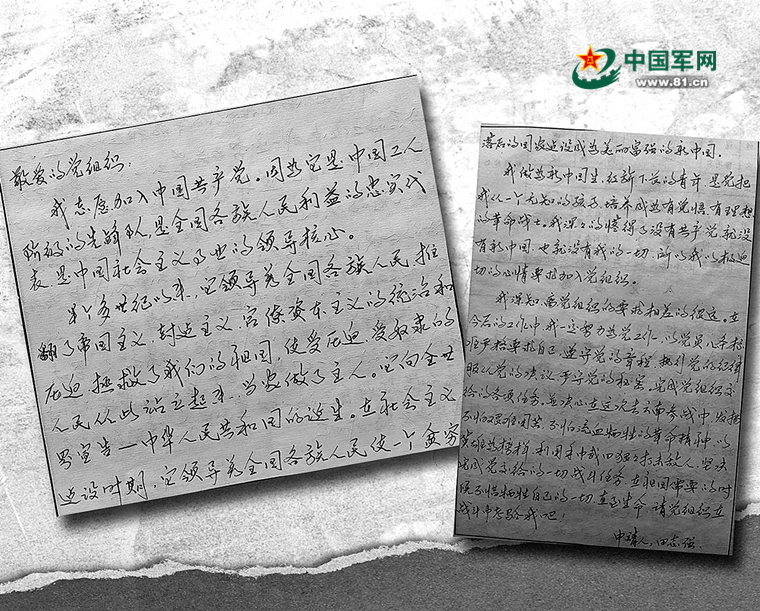 中国军网
www.81.cn
敬爱的党组织：
我志愿加入中国共产党。因为它是中国工人
阶级的先锋队，是全国各族人民利益的忠实代
表，是中国社会主义事业的领导核心。
半个多世纪以来，它领导着全国各族人民，推
翻了帝国主义、封建主义、官僚资本主义的统治和
压迫，拯救了我们的祖国，使受压迫、受奴隶的
人民从此站立起来，当家做了主人。它向全世
界宣告—中华人民共和国的诞生。在社会主义
建设时期，它领导着全国各族人民使一个贫穷
落后的国家建设成为美丽富强的新中国。
我做为新中国生，红旗下长的青年，是党把
我从一个无知的孩子，培养成为有觉悟，有理想
的革命战士。我深深的懂得了没有共产党，就没
有新中国，也就没有我的一切，所以我以极迫
切的心情要求加入党组织。
我深知，离党组织的要求相差的很远。在
今后的工作中，我一定努力为党工作，以党员八条标
准严格要求自己，遵守党的章程，执行党的纪律
服从党的决议，严守党的秘密，完成党组织交
给的各项任务，并决心在这次去云南参战中，发扬
不怕艰难困苦，不怕流血牺牲的革命精神，以
英雄为榜样，利用手中武器狠狠打击敌人，坚决
完成党交给的一切战斗任务，在祖国需要的时
候不惜牺牲自己的一切，直至生命，请党组织在
战斗中考验我吧！
申请人，田志强．